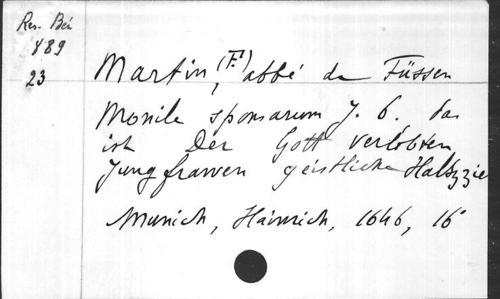 Res. Bé
889
23
Martin, (F.) abbé de Füssen
Monile sponsarum J. C. das
ist Der Gott verlobten
Jungfrawen geistliche Halszzie
Munich, Hainrich, 1646, 16°